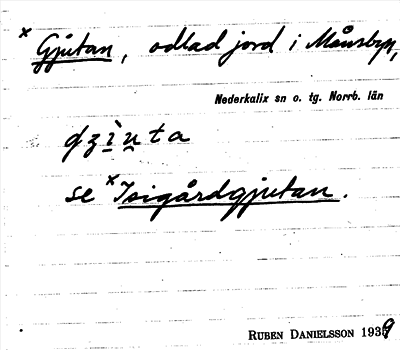 × Gjutan, odlad jord i Månsbyn,
Nederkalix sn o. tg. Norrb. län
se × Isigårdgjutan.
RUBEN DANIELSSON 1939